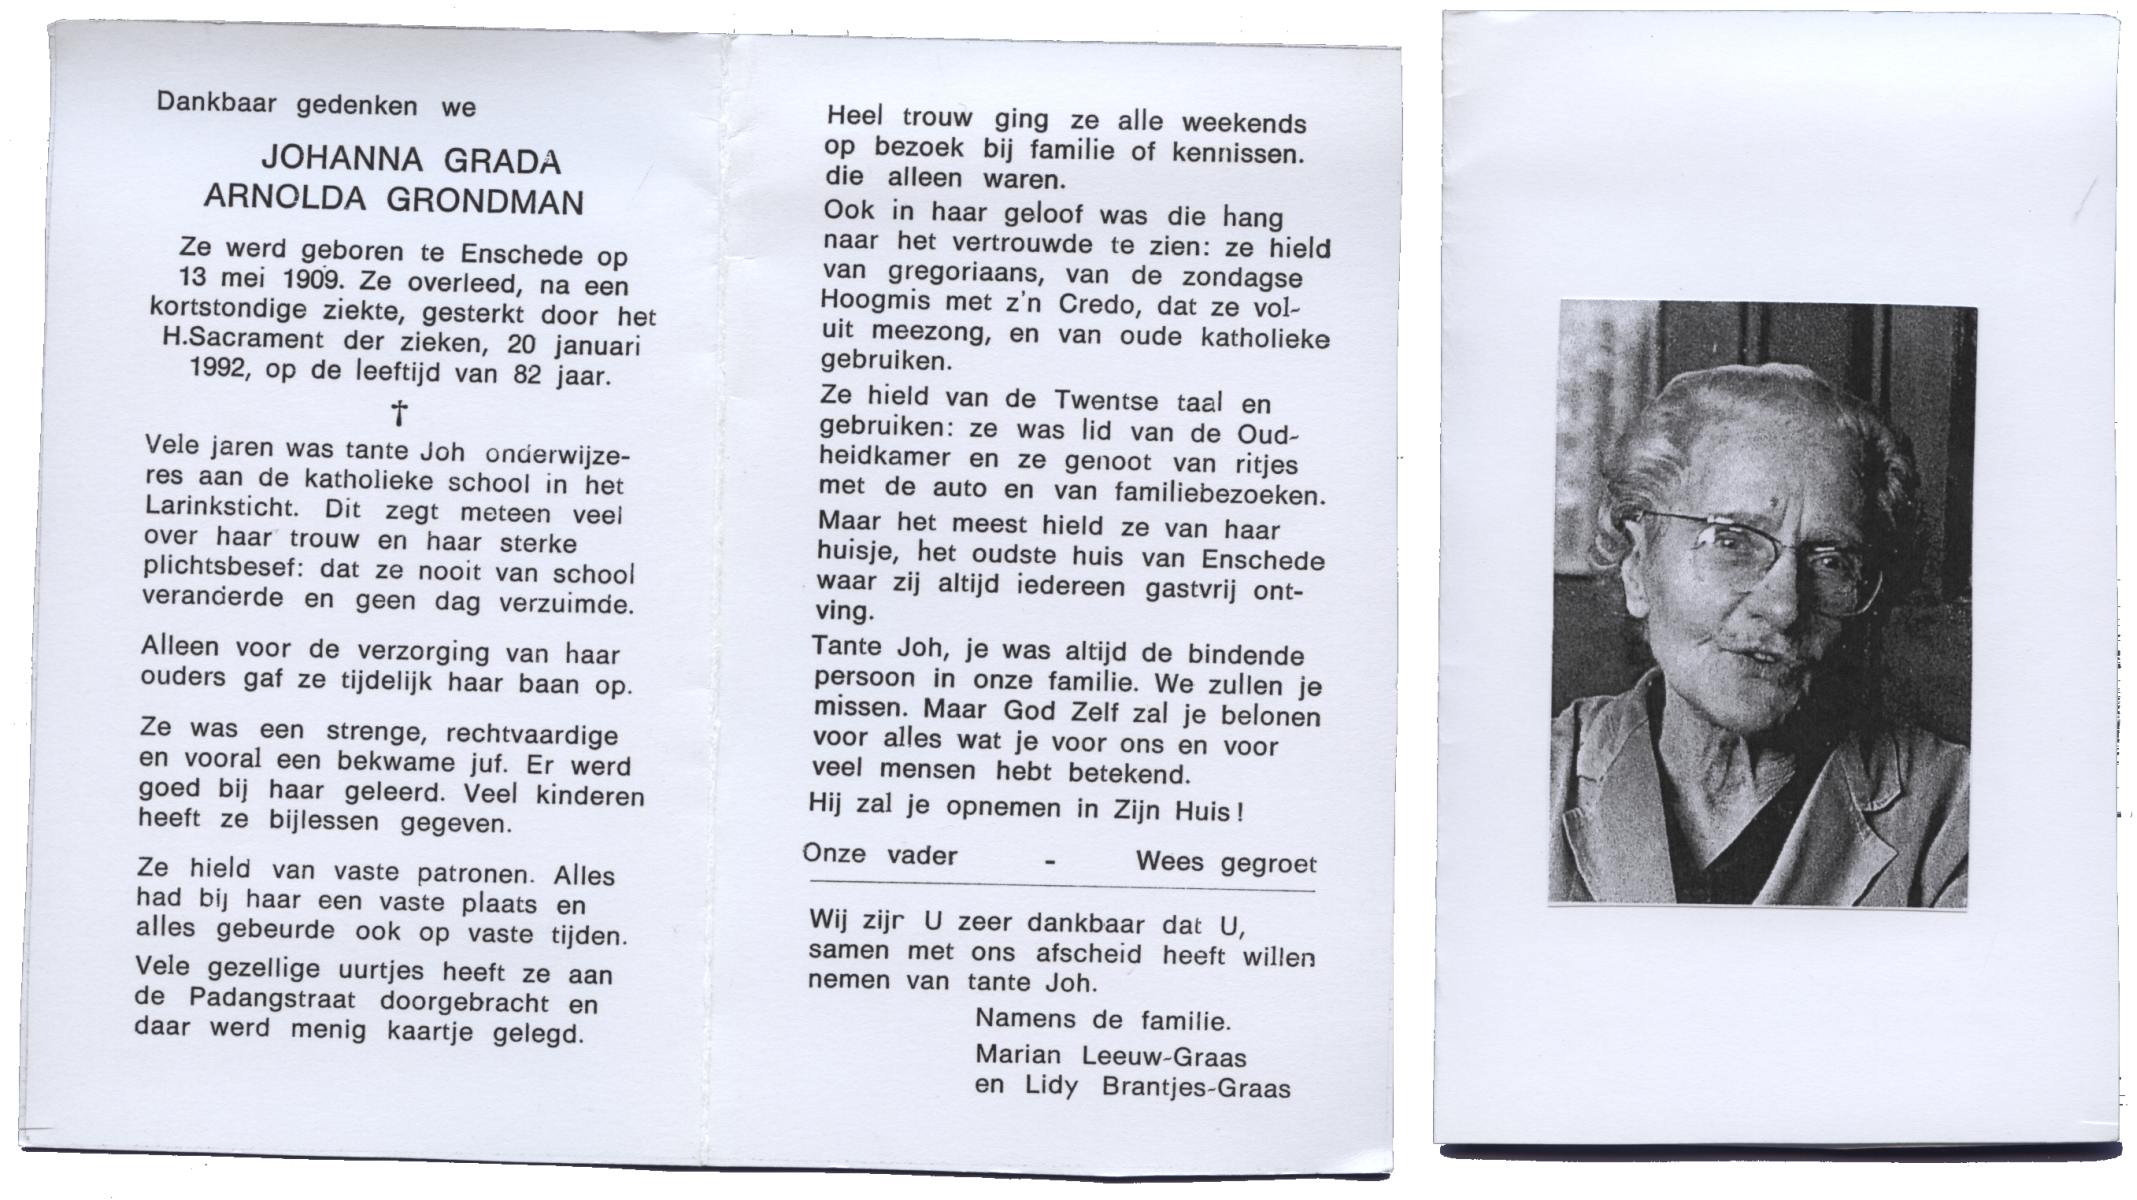 Dankbaar gedenken we
JOHANNA GRADA
ARNOLDA GRONDMAN
Ze werd geboren te Enschede op
13 mei 1909. Ze overleed, na een
kortstondige ziekte, gesterkt door het
H.Sacrament der zieken, 20 januari
1992, op de leeftijd van 82 jaar.
†
Vele jaren was tante Joh onderwijze-
res aan de katholieke school in het
Larinksticht. Dit zegt meteen veel
over haar trouw en haar sterke
plichtsbesef: dat ze nooit van school
veranderde en geen dag verzuimde.
Alleen voor de verzorging van haar
ouders gaf ze tijdelijk haar baan op.
Ze was een strenge, rechtvaardige
en vooral een bekwame juf. Er werd
goed bij haar geleerd. Veel kinderen
heeft ze bijlessen gegeven.
Ze hield van vaste patronen. Alles
had bij haar een vaste plaats en
alles gebeurde ook op vaste tijden.
Vele gezellige uurtjes heeft ze aan
de Padangstraat doorgebracht en
daar werd menig kaartje gelegd.
Heel trouw ging ze alle weekends
op bezoek bij familie of kennissen.
die alleen waren.
Ook in haar geloof was die hang
naar het vertrouwde te zien: ze hield
van gregoriaans, van de zondagse
Hoogmis met z'n Credo, dat ze vol-
uit meezong, en van oude katholieke
gebruiken.
Ze hield van de Twentse taal en
gebruiken: ze was lid van de Oud-
heidkamer en ze genoot van ritjes
met de auto en van familiebezoeken.
Maar het meest hield ze van haar
huisje, het oudste huis van Enschede
waar zij altijd iedereen gastvrij ont-
ving.
Tante Joh, je was altijd de bindende
persoon in onze familie. We zullen je
missen. Maar God Zelf zal je belonen
voor alles wat je voor ons en voor
veel mensen hebt betekend.
Hij zal je opnemen in Zijn Huis!
Onze vader - Wees gegroet
Wij zijn U zeer dankbaar dat U,
samen met ons afscheid heeft willen
nemen van tante Joh.
Namens de familie.
Marian Leeuw-Graas
en Lidy Brantjes-Graas